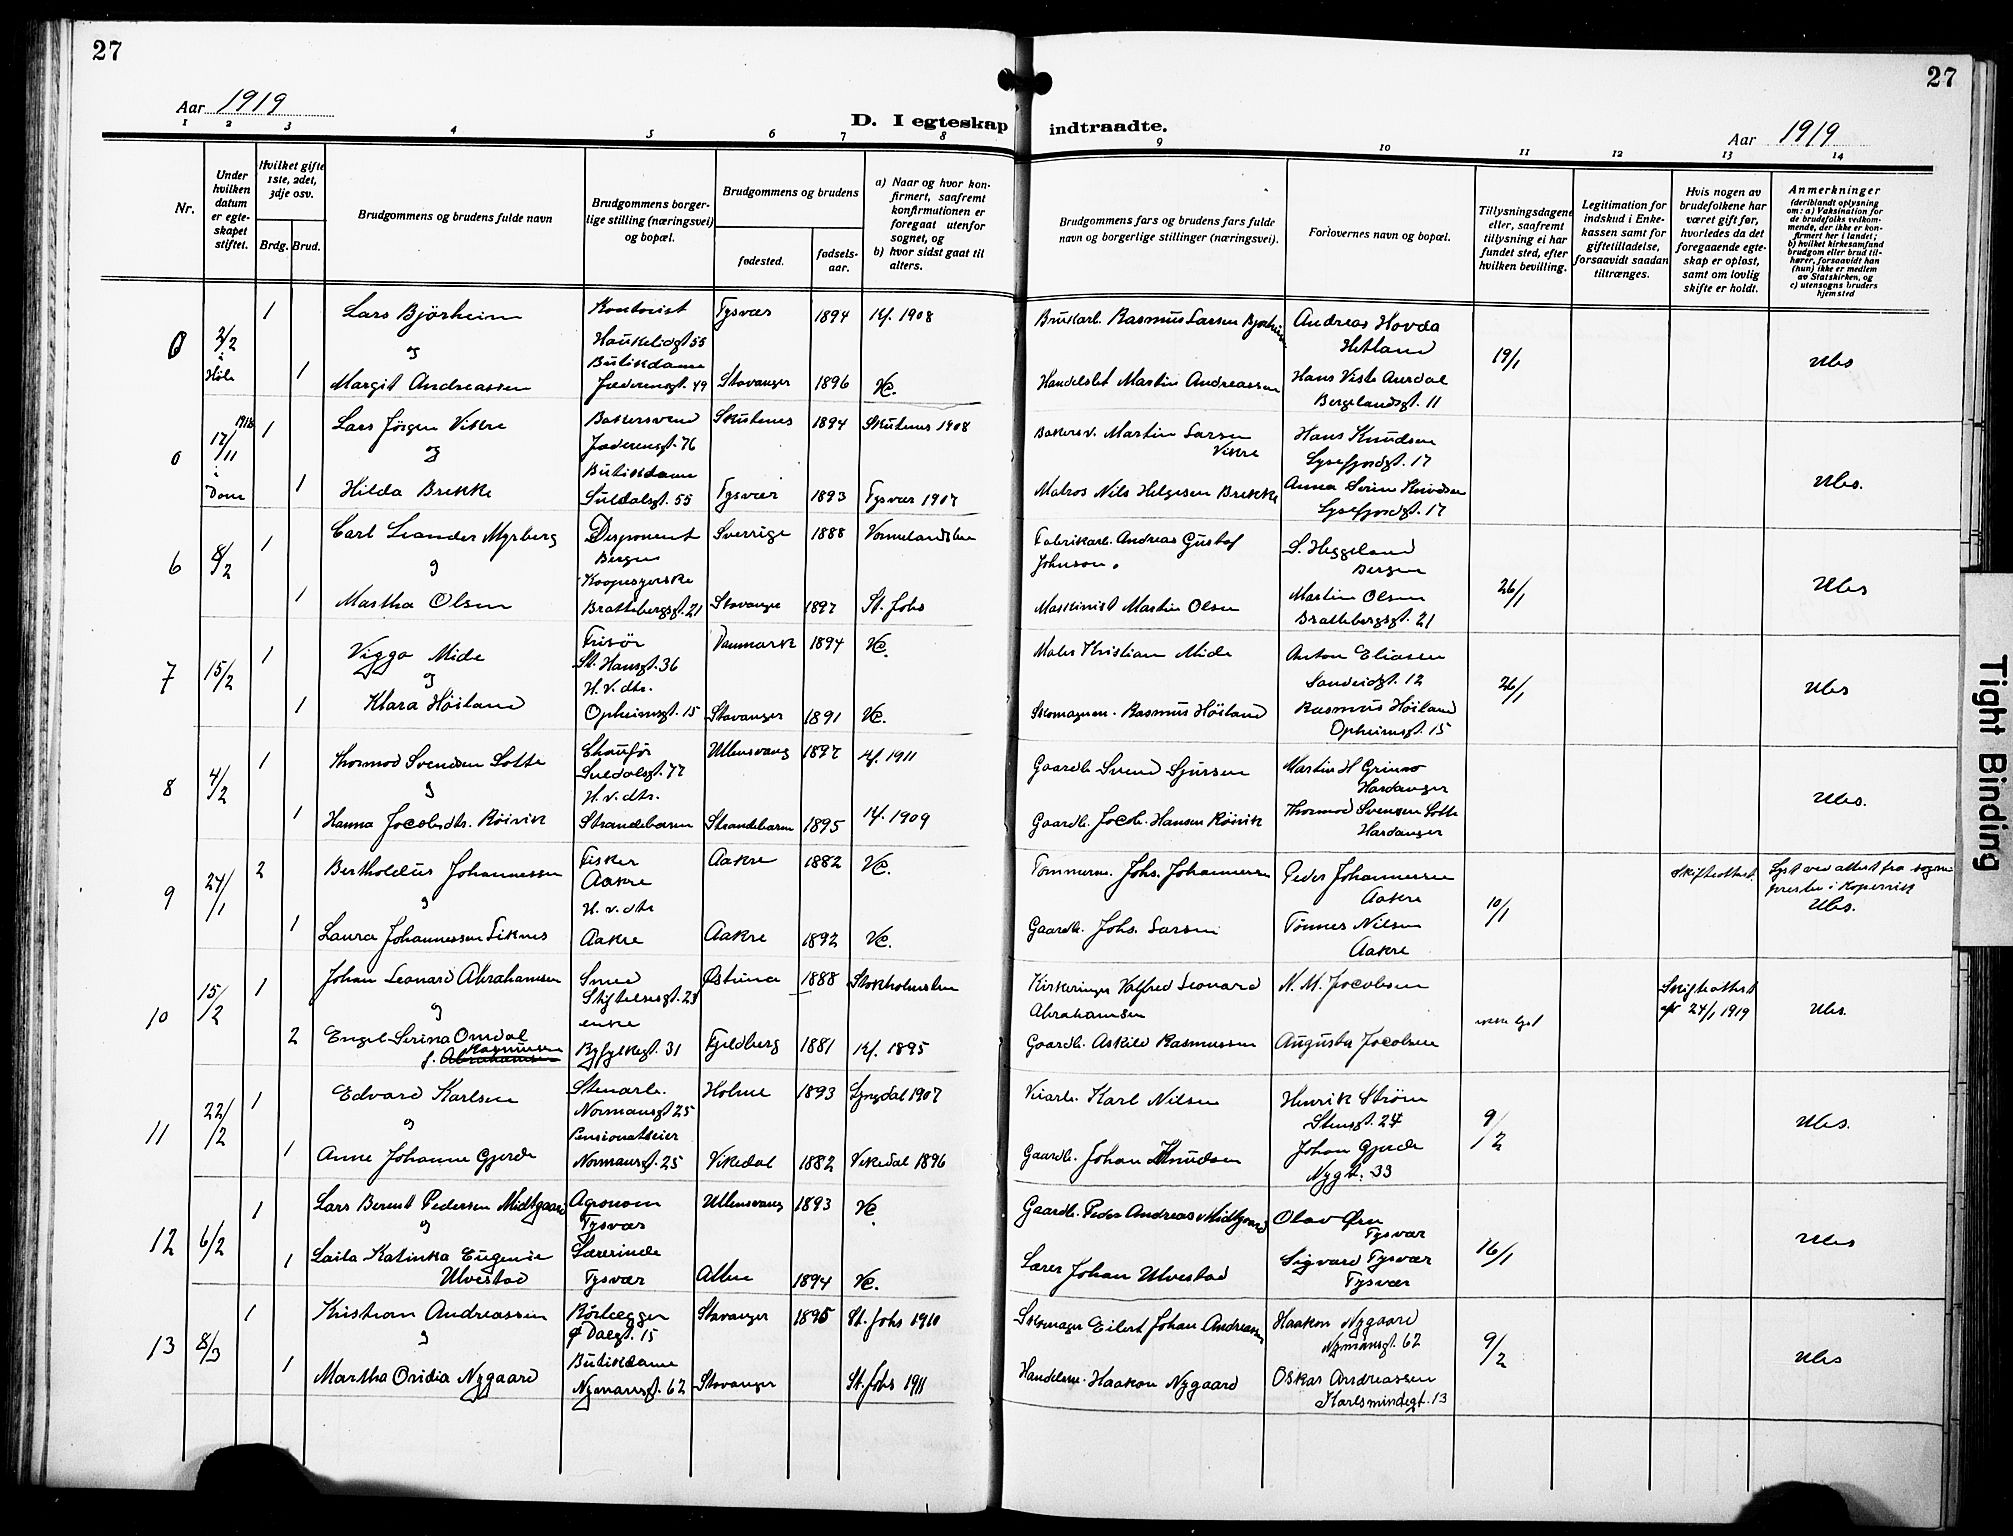 27
27
Aar 1919
D. I egteskap indtraadte.
Aar 1919
1 2 3 4 5 6 7 8 9 10 11 12 13 14
Nr.
Under hvilken datum er egteskapet stiftet.
Hvilket gifte 1ste, 2det, 3dje osv.
Brdg. Brud.
Brudgommens og brudens fulde navn
Brudgommens borgerlige stilling (næringsvei) og bopæl.
Brudgommens og brudens
fødested.
fødselsaar.
a) Naar og hvor konfirmert, saafremt konfirmationen er foregaat utenfor sognet, og
b) hvor sidst gaat til alters.
Brudgommens fars og brudens fars fulde navn og borgerlige stillinger (næringsvei).
Forlovernes navn og bopæl.
Tillysningsdagene eller, saafremt tillysning ei har fundet sted, efter hvilken bevilling.
Legitimation for indskud i Enkekassen samt for giftetilladelse, forsaavidt saadan tiltrænges.
Hvis nogen av brudefolkene har været gift før, hvorledes da det foregaaende egteskap er opløst, samt om lovlig skifte er holdt.
Anmerkninger (deriblandt oplysning om: a) Vaksination for de brudefolks vedkommende, der ikke er konfirmert her i landet; b) hvilket kirkesamfund brudgom eller brud tilhører, forsaavidt han (hun) ikke er medlem av Statskirken, og c) utensogns bruders hjemsted
0 2/2 i Høle 1 Lars Bjørheim Kontorist Tysvær 1894 1908 Brukarb. Rasmus Larsen Bjørheim Andreas Hovda
og Haukelidgt 55 Hetland 19/1 Ubs
Butikdame
1 Margit Andreassen Jæderensgt. 49 Stavanger 1896 Vc. Handelsbet Martin Andreassen Hans Viste Aurdal
Bergelandsgt. 11
0 17/11 1918 i Dom 1 Lars Jørgen Vikre Bakersvend Skutenes 1894 Skutenes 1908 Bakersv. Martin Larsen Vikre Hans Knudsen
og Jæderensgt. 76 Lysefjordgt. 17
Butikdame Ubs.
1 Hilda Brekke Suldalsgt. 55 Tysvær 1893 Tysvær 1907 Matros Nils Helgesen Brekke Anna Knudsen
Lysefjordgt. 17
6 8/2 1 Carl Leander Myrberg Disponent Sverrige 1888 Fabrikarb. Andreas Gustaf Johnson. S. Heggeland
og Bergen Bergen 26/1 Ubs
1 Martha Olsen Brattebergsgt. 21 Stavanger 1897 St. Johs Maskinist Martin Olsen Martin Olsen
Brattebergsgt. 21
7 15/2 1 Viggo Mide Frisør Danmark 1894 Vc. Maler Kristian Mide Anton Eliasen
og St. Hansgt. 36 Sandvidgt. 12 26/1 Ubs
H. v. dtr.
1 Klara Høiland Opheimsgt. 15 Stavanger 1891 Vc. Skomagerm. Rasmus Høiland Rasmus Høiland
Opheimsgt. 15
8 4/2 1 Thormod Svendsen Lotte Chauför Ullensvang 1897 1911 Gaardb. Svend Sjursen Martin H Grimo
og Suldalsgt. 77 Hardanger
H. v. dtr. Ubs.
1 Hanna Jacobsdtr. Røivik Strandebarm Strandebarm 1895 1909 Gaardb. Jacob Hansen Røivik Thormod Svensen Lotte
Hardanger
9 24/1 2 Bertholdus Johannessen Fisker Aakre 1882 Vc. Tømmerm. Johs. Johannessen Peder Johannessen Skifteattest. Lyst ved attest fra sogneprestn i Kopervik
og Aakre Aakre 10/1 Ubs.
H. v. dtr
1 Laura Johannessen Liknes Aakre Aakre 1892 Vc. Gaardb. Johs. Larsen Tønnes Nilsen
Aakre
10 15/2 1 Johan Leonard Abrahamsen Smed 1888 Valfred Leonard Abrahamsen N. M. Jacobsen Skifteattest
og Stiftelsesgt. 23 af 24/1 1919 Ubs.
enke ikke lyst
2 Engel Serina Omdal Ryfylkegt. 31 Fjeldberg 1881 1895 Gaardb. Askild Rasmussen Augusta Jacobsen
f. Abrahamsen Rasmussen
11 22/2 1 Edvard Karlsen Stenarb. Holme 1893 Lyngdal 1907 Karl Nilsen Henrik Strøm
og Normansgt. 25 Stensgt. 24 9/2 Ubs.
Pensionatseier
1 Anne Johanne Gjerde Normansgt. 25 Vikedal 1882 Vikedal 1896 Gaardb. Johan Knudsen Johan Gjerde
Nygt. 33
12 6/2 1 Lars Berent Pedersen Midtgaard Agronom Ullensvang 1893 Vc. Gaardb. Peder Andreas Midtgaard Olav Øru
og Tysvær Tysvær 16/1 Ubs
1 Laila Katinka Eugenie Ulvestad Lærerinde Tysvær 1894 Vc. Lærer Johan Ulvestad Sigvard Tysvær
Tysvær
13 8/3 1 Kristian Andreassen Rørlægger Stavanger 1895 St. Johs 1910 Skomager Eilert Johan Andreassen Haakon Nygaard
og Ø Dalgt. 15 Nymansgt. 62 9/2 Ubs
Butikdame
1 Martha Ovidia Nygaard Nymansgt. 62 Stavanger St. Johs 1911 Handelsm. Haakon Nygaard Oskar Andreassen
Karlsmindegt. 13
Tight Binding